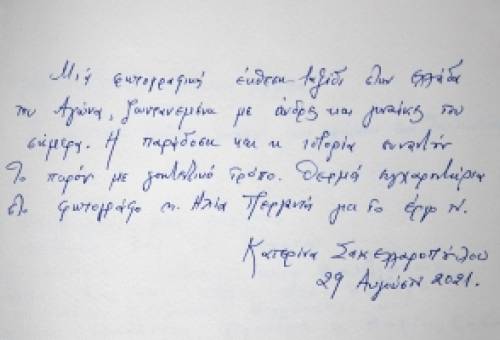 Μιά φωτογραφική έκθεση-ταξίδι στην Ελλάδα
του Αγώνα, ζωντανεμένα με άνδρες και γυναίκες του
σήμερα. Η παράδοση και η ιστορία συναντούν
το παρόν με γοητευτικό τρόπο. Θερμά συγχαρητήρια
στο φωτογράφο κ. Ηλία Περγαντή για το έργο του.
Κατερίνα Σακελλαροπούλου
29 Αυγούστου 2021.